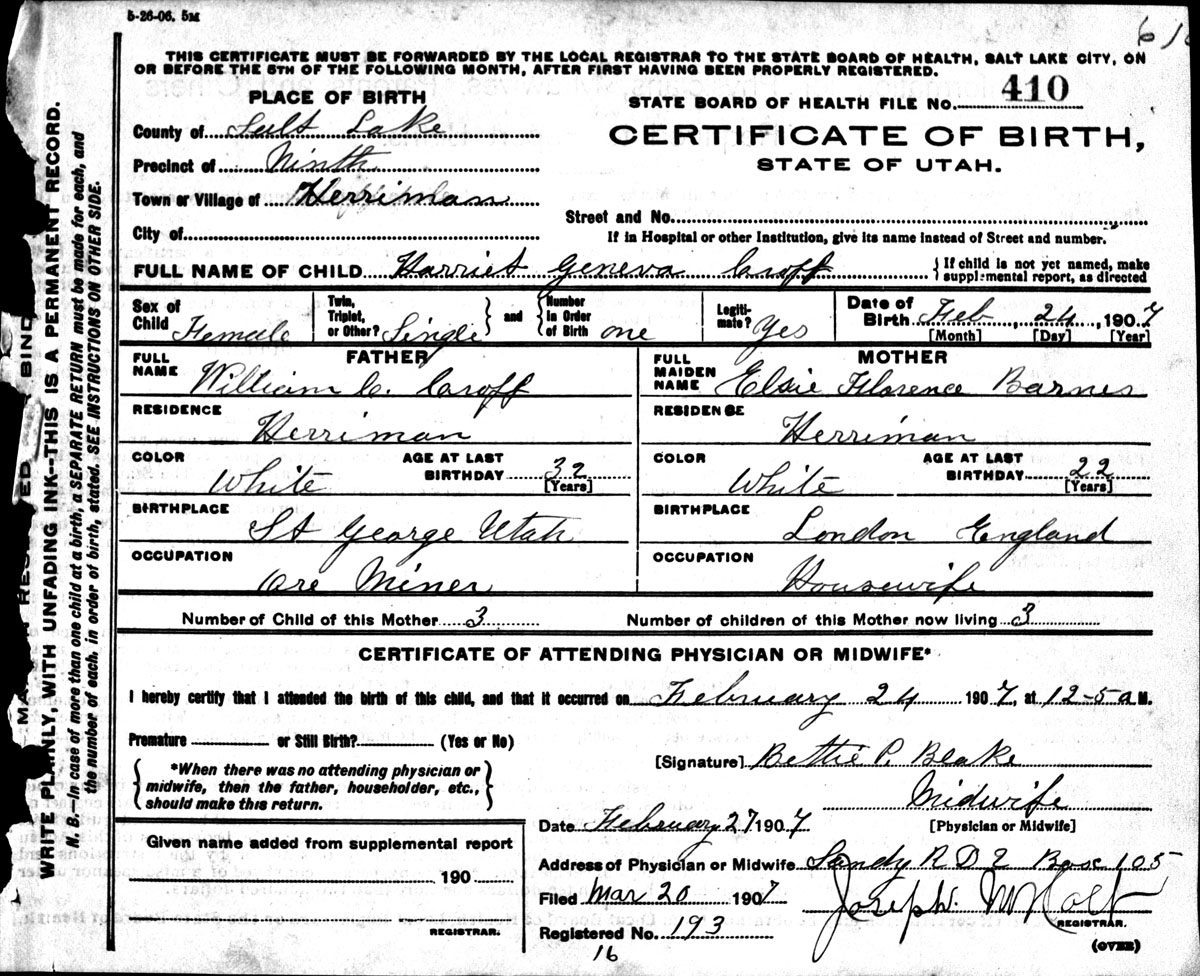 5-26-06. 5M
THIS CERTIFICATE MUST BE FORWARDED BY THE LOCAL REGISTRAR TO THE STATE BOARD OF HEALTH, SALT LAKE CITY, ON
OR BEFORE THE 5TH OF THE FOLLOWING MONTH, AFTER FIRST HAVING BEEN PROPERLY REGISTERED.
PLACE OF BIRTH
STATE BOARD OF HEALTH FILE NO. 410
County of Salt Lake
CERTIFICATE OF BIRTH,
STATE OF UTAH.
Precinct of Ninth
Town or Village of Herriman
Street and No.
City of
If in Hospital or other Institution, give its name instead of Street and number.
FULL NAME OF CHILD Harriet Geneva Croff { If child is not yet named, make
supplemental report, as directed
Sex of Child Female
Twin, Triplet, or Other? Single } and { Number in Order of Birth one
Legitimate? Yes
Date of Birth Feb, 24, 1907
[Month] [Day] [Year]
FATHER
FULL NAME William C. Croff
RESIDENCE
Herriman
COLOR White AGE AT LAST BIRTHDAY 32
[Years]
BIRTHPLACE
St George Utah
OCCUPATION
Ore Miner
MOTHER
FULL MAIDEN NAME Elsie Florence Barnes
RESIDENCE
Herriman
COLOR White AGE AT LAST BIRTHDAY 22
[Years]
BIRTHPLACE
London England
OCCUPATION
Housewife
Number of Child of this Mother 3 Number of children of this Mother now living 3
CERTIFICATE OF ATTENDING PHYSICIAN OR MIDWIFE*
I hereby certify that I attended the birth of this child, and that it occurred on February 24 1907, at 12-5 a M.
Premature or Still Birth? (Yes or No)
{ *When there was no attending physician or
midwife, then the father, householder, etc.,
should make this return. }
[Signature] Bettie P. Blake
Midwife
[Physician or Midwife]
Date February 27 1907
Given name added from supplemental report
190
REGISTRAR.
Address of Physician or Midwife Sandy R D 2 Box 105
Filed Mar 20 1907 Joseph M Holt
REGISTRAR.
Registered No. 193
16
(OVER)
WRITE PLAINLY, WITH UNFADING INK--THIS IS A PERMANENT RECORD.
N. B.—In case of more than one child at a birth, a SEPARATE RETURN must be made for each, and
the number of each, in order of birth, stated. SEE INSTRUCTIONS ON OTHER SIDE.